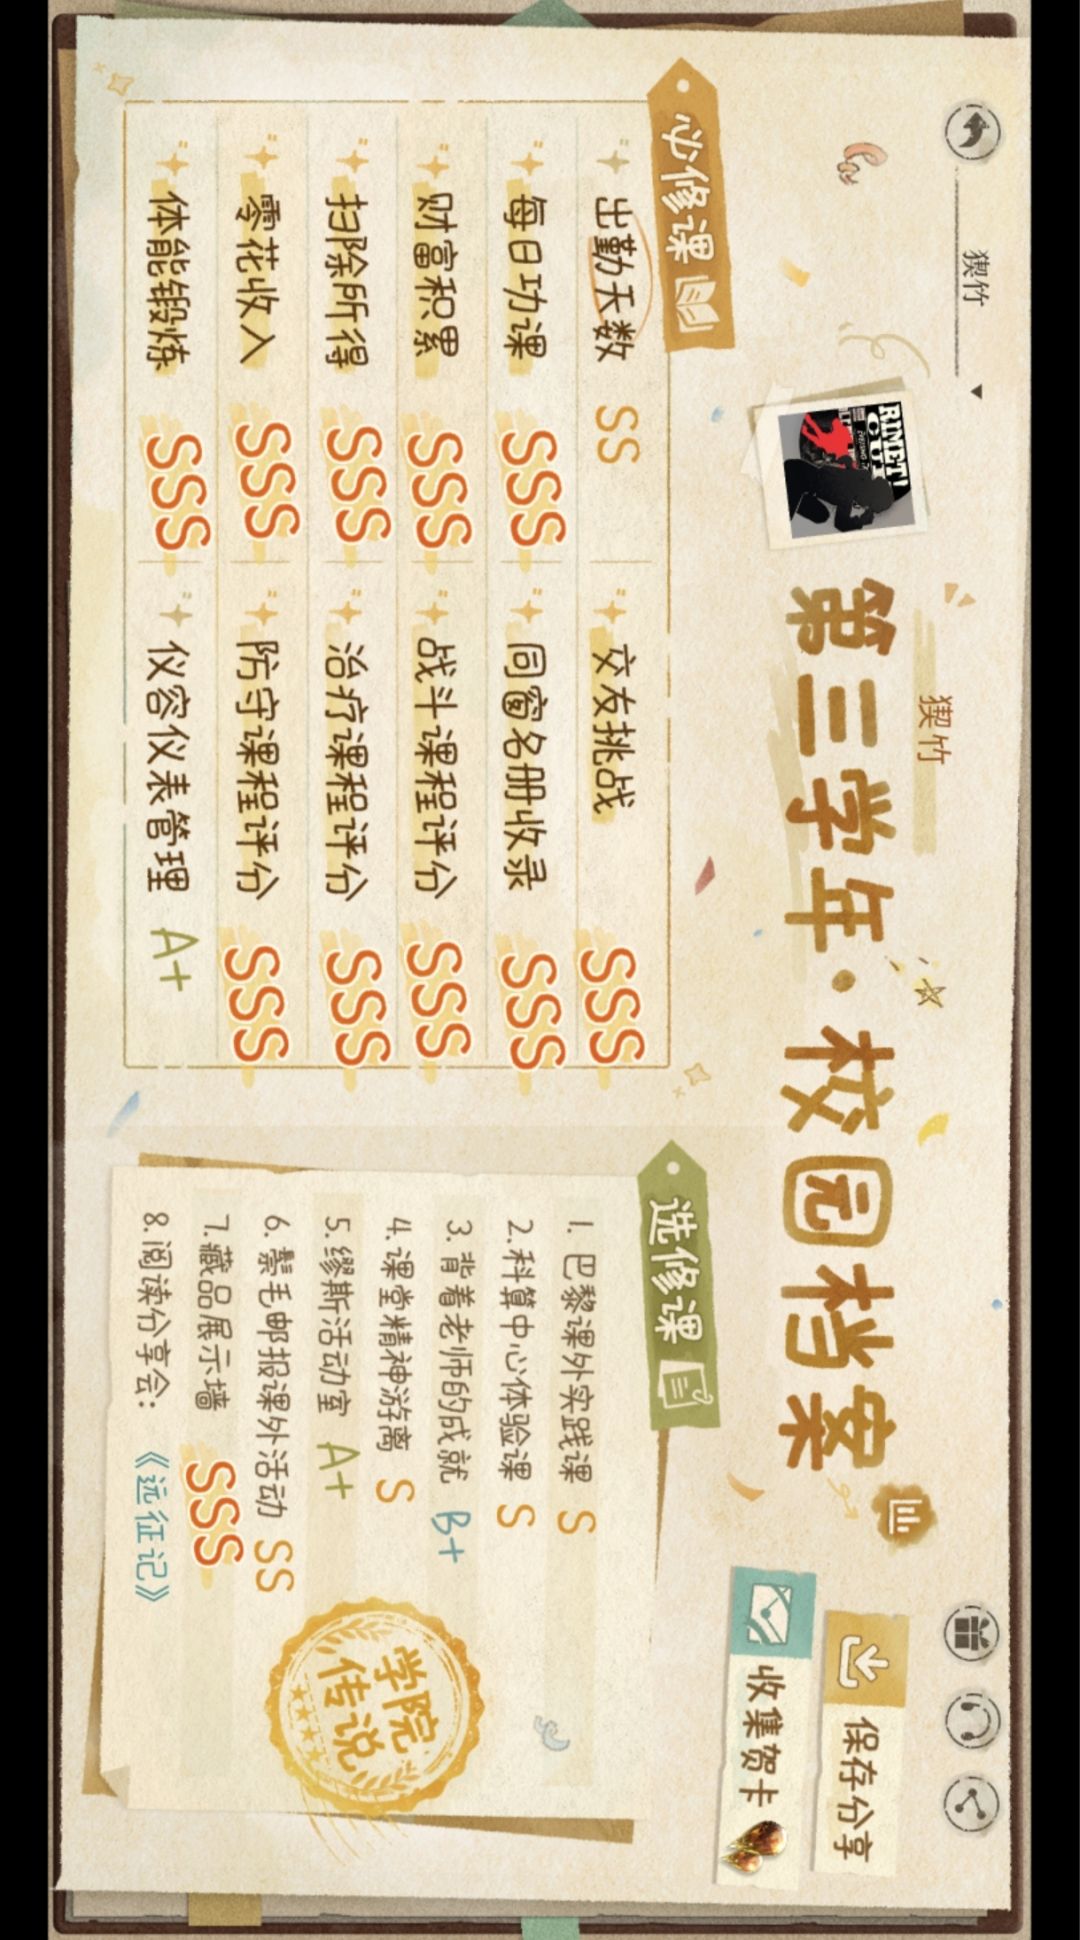 猰竹
猰竹
第三学年·校园档案
保存分享
收集贺卡
必修课
出勤天数 SS
交友挑战 SSS
每日功课 SSS
同窗名册收录 SSS
财富积累 SSS
战斗课程评分 SSS
扫除所得 SSS
治疗课程评分 SSS
零花收入 SSS
防守课程评分 SSS
体能锻炼 SSS
仪容仪表管理 A+
选修课
1. 巴黎课外实践课 S
2. 科算中心体验课 S
3. 背着老师的成就 B+
4. 课堂精神游离 S
5. 缪斯活动室 A+
6. 鬃毛邮报课外活动 SS
7. 藏品展示墙 SSS
8. 阅读分享会：《远征记》
学院
传说